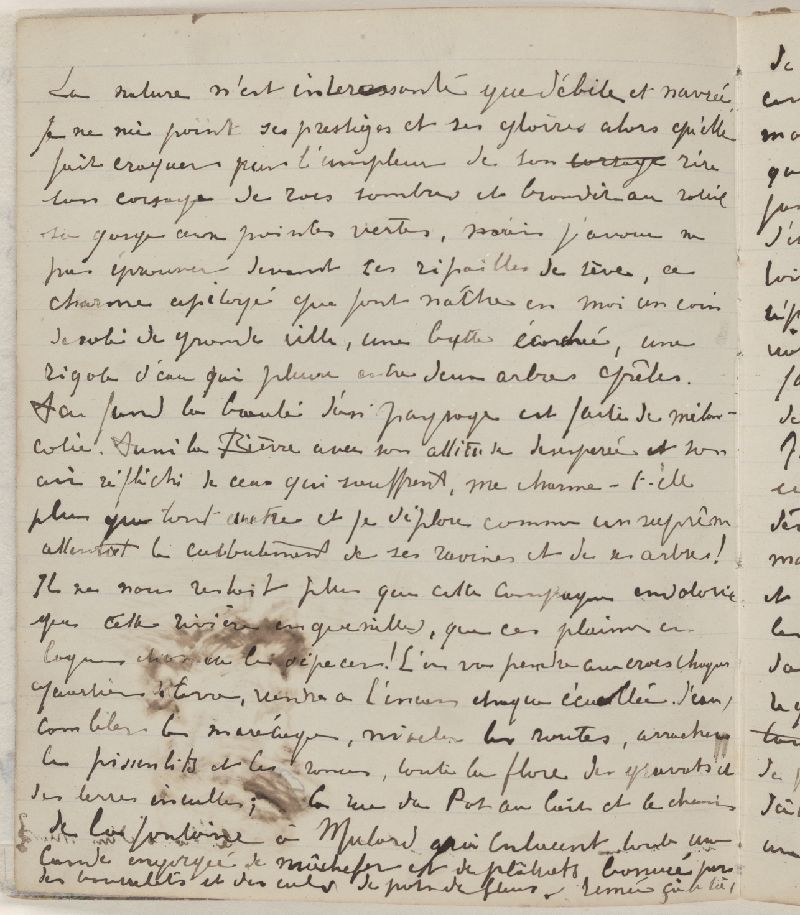 La nature n'est intéressante que débile et navrée
Je ne nie point ses prestiges et ses gloires alors qu'elle
fait craquer par l'ampleur de son corsage rire
son corsage de rocs sombres et brandit au soleil
sa gorge aux pointes vertes, mais j'avoue ne
pas éprouver devant ses ripailles de sève, ce
charme apitoyé que font naître en moi un coin
désolé de grande ville, une butte écorchée, une
rigole d'eau qui pleure entre deux arbres grêles.
Au fond la beauté d'un paysage est faite de mélan-
colie. Aussi la Bièvre avec son attitude désespérée et son
air réfléchi de ceux qui souffrent, me charme-t-elle
plus que tout autre et je déplore comme un suprême
attentat le culbutement de ses ravines et de ses arbres!
Il ne nous restait plus que cette campagne endolorie
que cette rivière en guenilles, que ces plaines en
loques et on va les dépecer! L'on va pendre aux crocs chaque
quartier de terre, vendre à l'encan chaque écuellée d'eau,
combler les marécages, niveler les routes, arracher
les pissenlits et les ronces, toute la flore des gravats et
des terres incultes; la rue du Pot au lait et le chemin
de la fontaine à Mulard qui enlacent toute une
lande engorgée de mâchefer et de plâtras, bornée par
des et des culs de pots de fleurs, semée çà et là,
de
ma
et
de